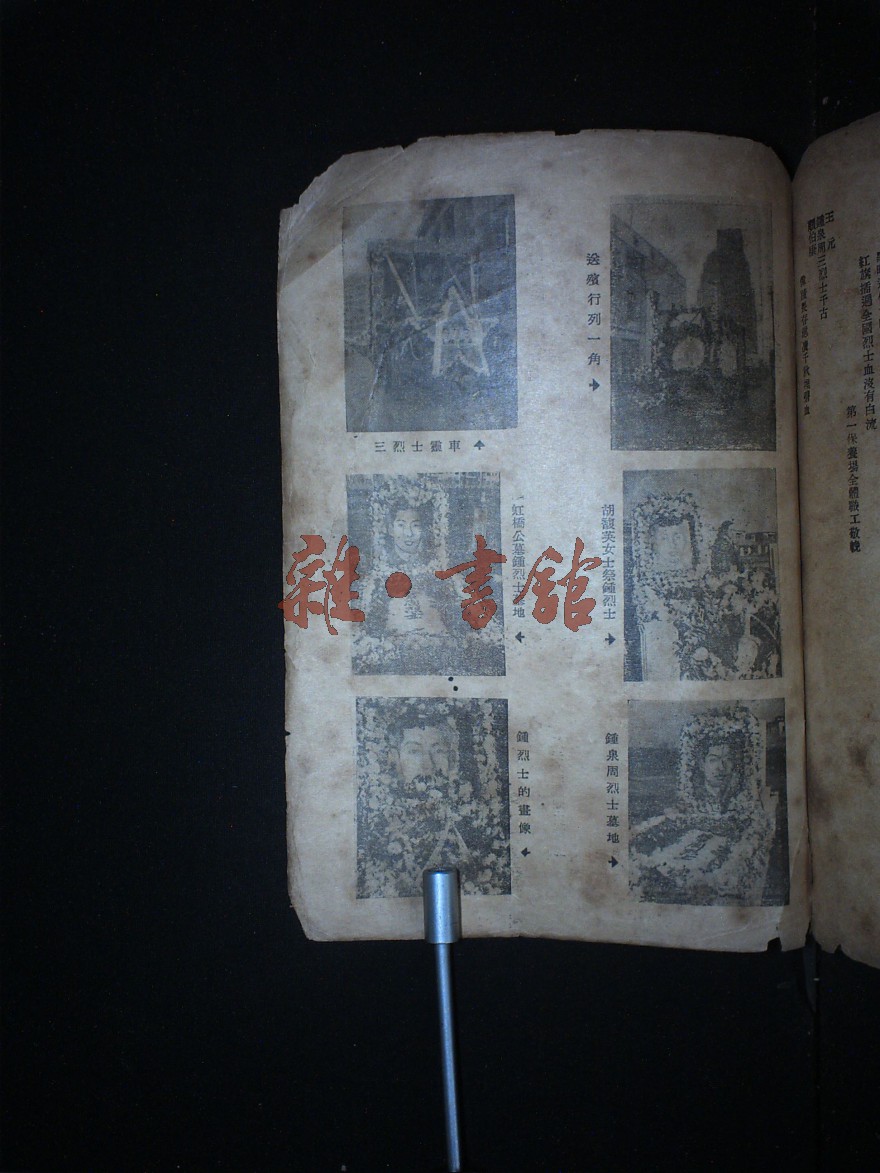 送殯行列一角
三烈士靈車
胡馥英女士祭鍾烈士
虹橋公墓鍾烈士墓地
鍾泉周烈士墓地
鍾烈士的畫像
王元
鍾泉周三烈士千古
紅旗插遍全國烈士血沒有白流
第一保養場全體職工敬輓
雜·書館